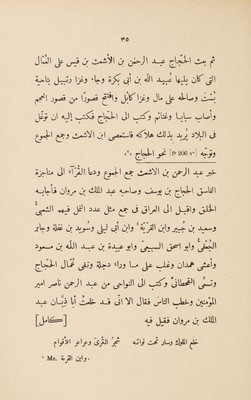 ٣٥
ثم بعث الحجّاج عبد الرحمن بن الأشعث بن قيس على العمّال
التى كان يليها عُبيد اللّه بن أبى بكرة وجاء وغزا رتبيل بناحية
بُست وصالحه على مال وغزا كابُل وافتتح قصورًا من قصور العجم
وأصاب سبايا وغنائم وكتب الى الحجّاج فكتب إليه ان توغّل
فى البلاد يُريد بذلك هلاكه فاستعصى ابن الاشعث وجمع الجموع
وتوجّه [fº 206 vº] نحو الحجاج
خبر عبد الرحمن بن الاشعث جمع ودعا القُرّاء الى مناجزة
الفاسق الحجاج بن يوسف وصاحبه عبد الملك بن مروان فأجابه
الخلق واقبل الى العراق فى جمع مثل عدد النمل فيهم الشعبىُّ
وسعيد بن جُبير وابن القرّيّة ¹ وابن أبى ليلى وسُويد بن غفلة وجابر
الجُعْفىُّ وابو اسحق السبيعىُّ وابو عبيدة بن عبد اللّه بن مسعود
وأعشى همدان وغلب على ما وراء دجلة ونفى عُمّال الحجّاج
وتسمَّى القحطانىَّ وكتب الى النواحى من عبد الرحمن ناصر امير
المؤمنين وخطب الناس فقال الا انّى قد خلعتُ أبا ذِبّان عبد
الملك بن مروان فقيل فيه [كامل]
خلع الملوك وسار تحت لوائه شجرُ القُرَى وعراعر الأقوام
¹ Ms. وابن القرية.